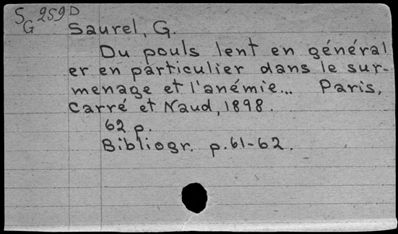 S 259D
G
Saurel, G.
Du pouls lent en général
er en particulier dans le sur-
menage et l'anémie... Paris,
Carré et Naud, 1898.
62 p.
Bibliogr. p. 61-62.